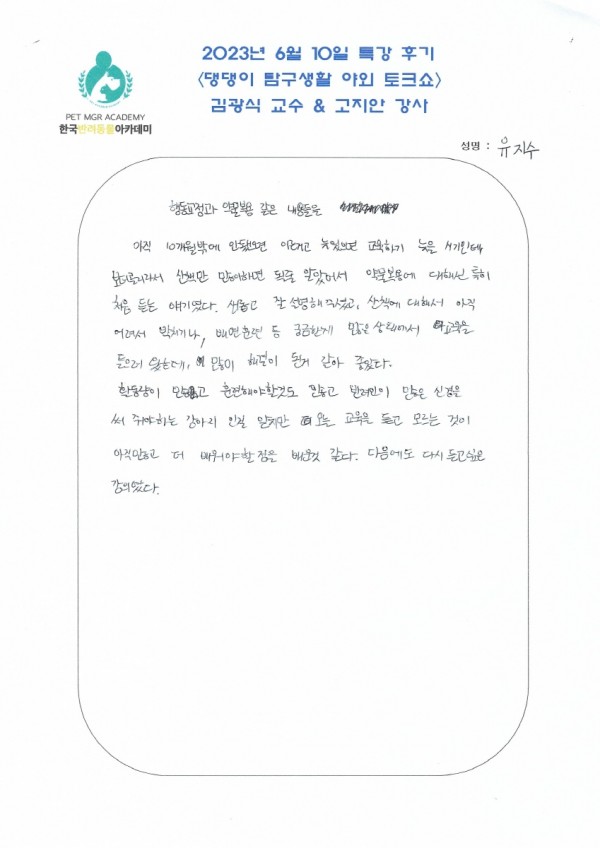 2023년 6월 10일 특강 후기
<댕댕이 탐구생활 야외 토크쇼>
김광식 교수 & 고지안 강사
PET MGR ACADEMY
한국반려동물아카데미
성명 : 유지수
행동교정과 약물복용 같은 내용들을
아직 10개월밖에 안됐으면 이르고 늦었으면 교육하기 늦을 시기인데
산책만 많이하면 될줄 알았어서 약물복용에 대해선 특히
처음 듣는 얘기였다. 쉽고 잘 설명해주셨고, 산책에 대해서 아직
어려서 벅차거나, 배변훈련 등 궁금한게 많은 상황에서 교육을
들으러 왔는데, 많이 해결이 된거 같아 좋았다.
활동량이 많고 훈련해야할것도 많고 반려인이 많은 신경을
써 줘야하는 강아지 인걸 알지만 오늘 교육을 듣고 모르는 것이
아직많고 더 배워야할 점을 배운것 같다. 다음에도 다시 듣고싶은
강의였다.